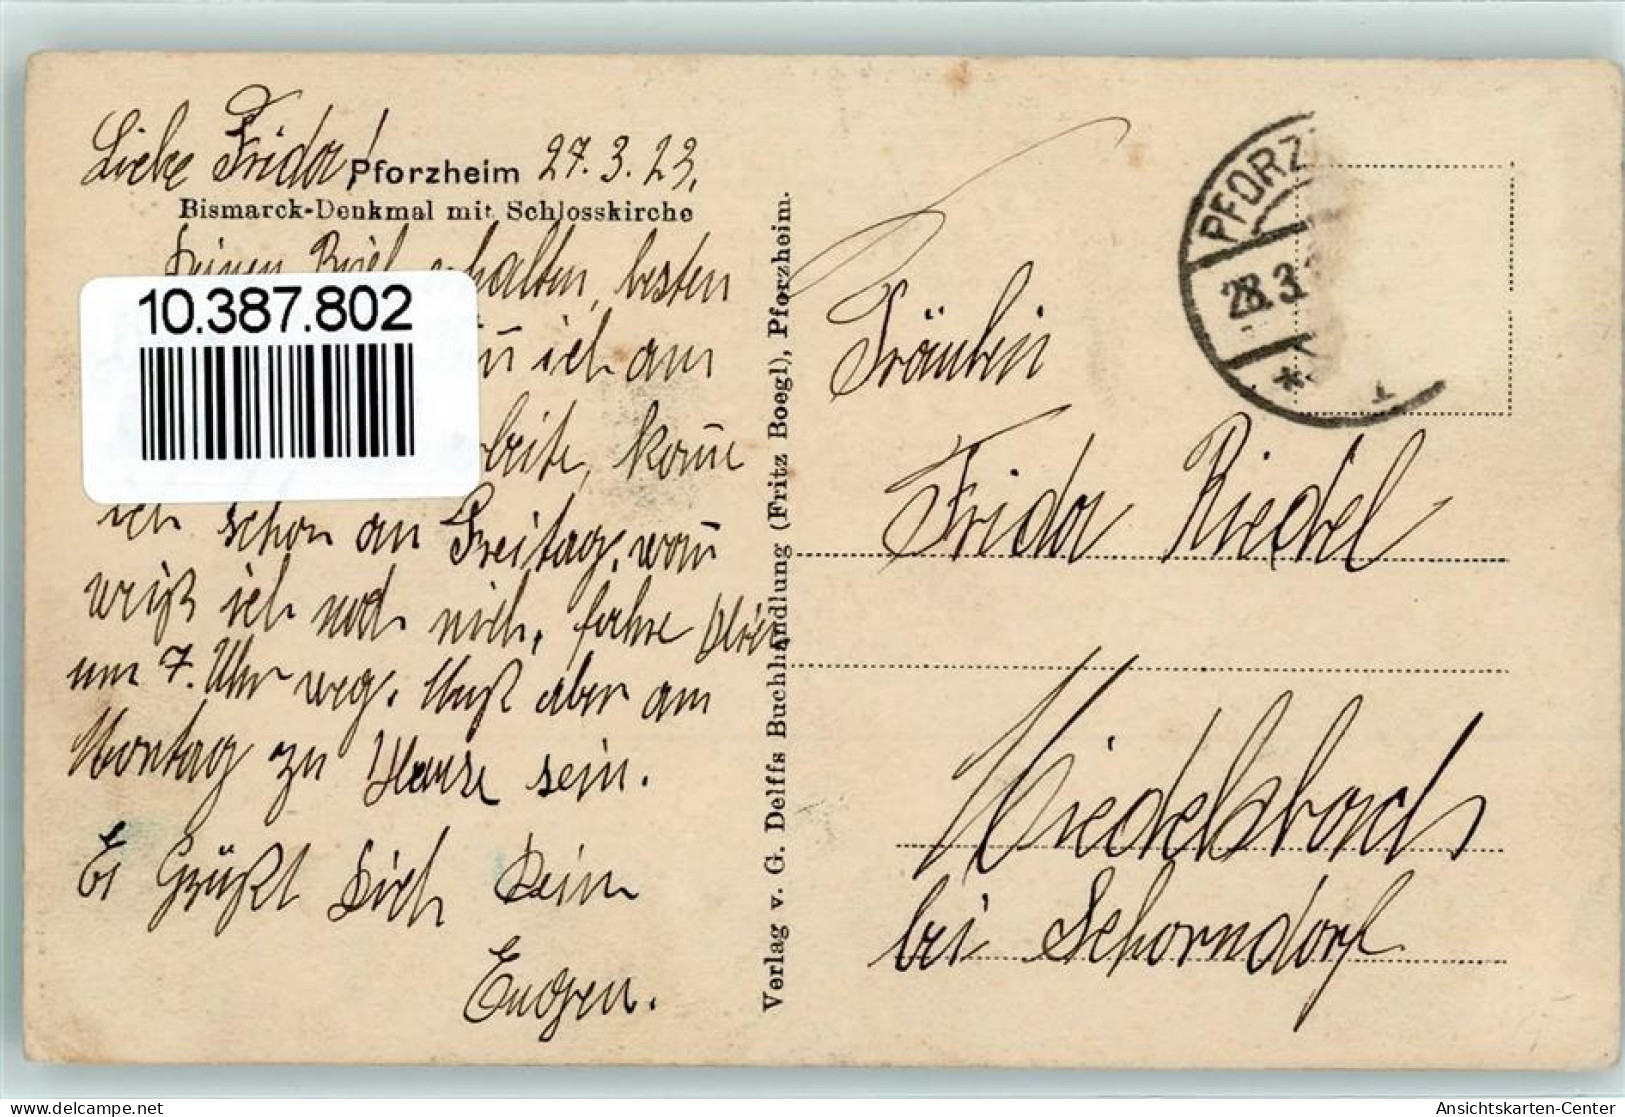 Liebe Frida!
Pforzheim 27.3.23.
Bismarck-Denkmal mit Schlosskirche
Deinen Brief erhalten, besten
10.387.802
ich am
komme
ich schon an Freitag, wann
weiß ich noch nich, fahre hier
um 7. Uhr weg. Muß aber am
Montag zu Hause sein.
Es Grüßt Dich Dein
Eugen.
Verlag v. G. Delffs Buchhandlung (Fritz Boegl), Pforzheim.
PFORZ
28.3.
Fräulein
Frida Riedel
Miedelsbach
bei Schorndorf
Ansichtskarten-Center